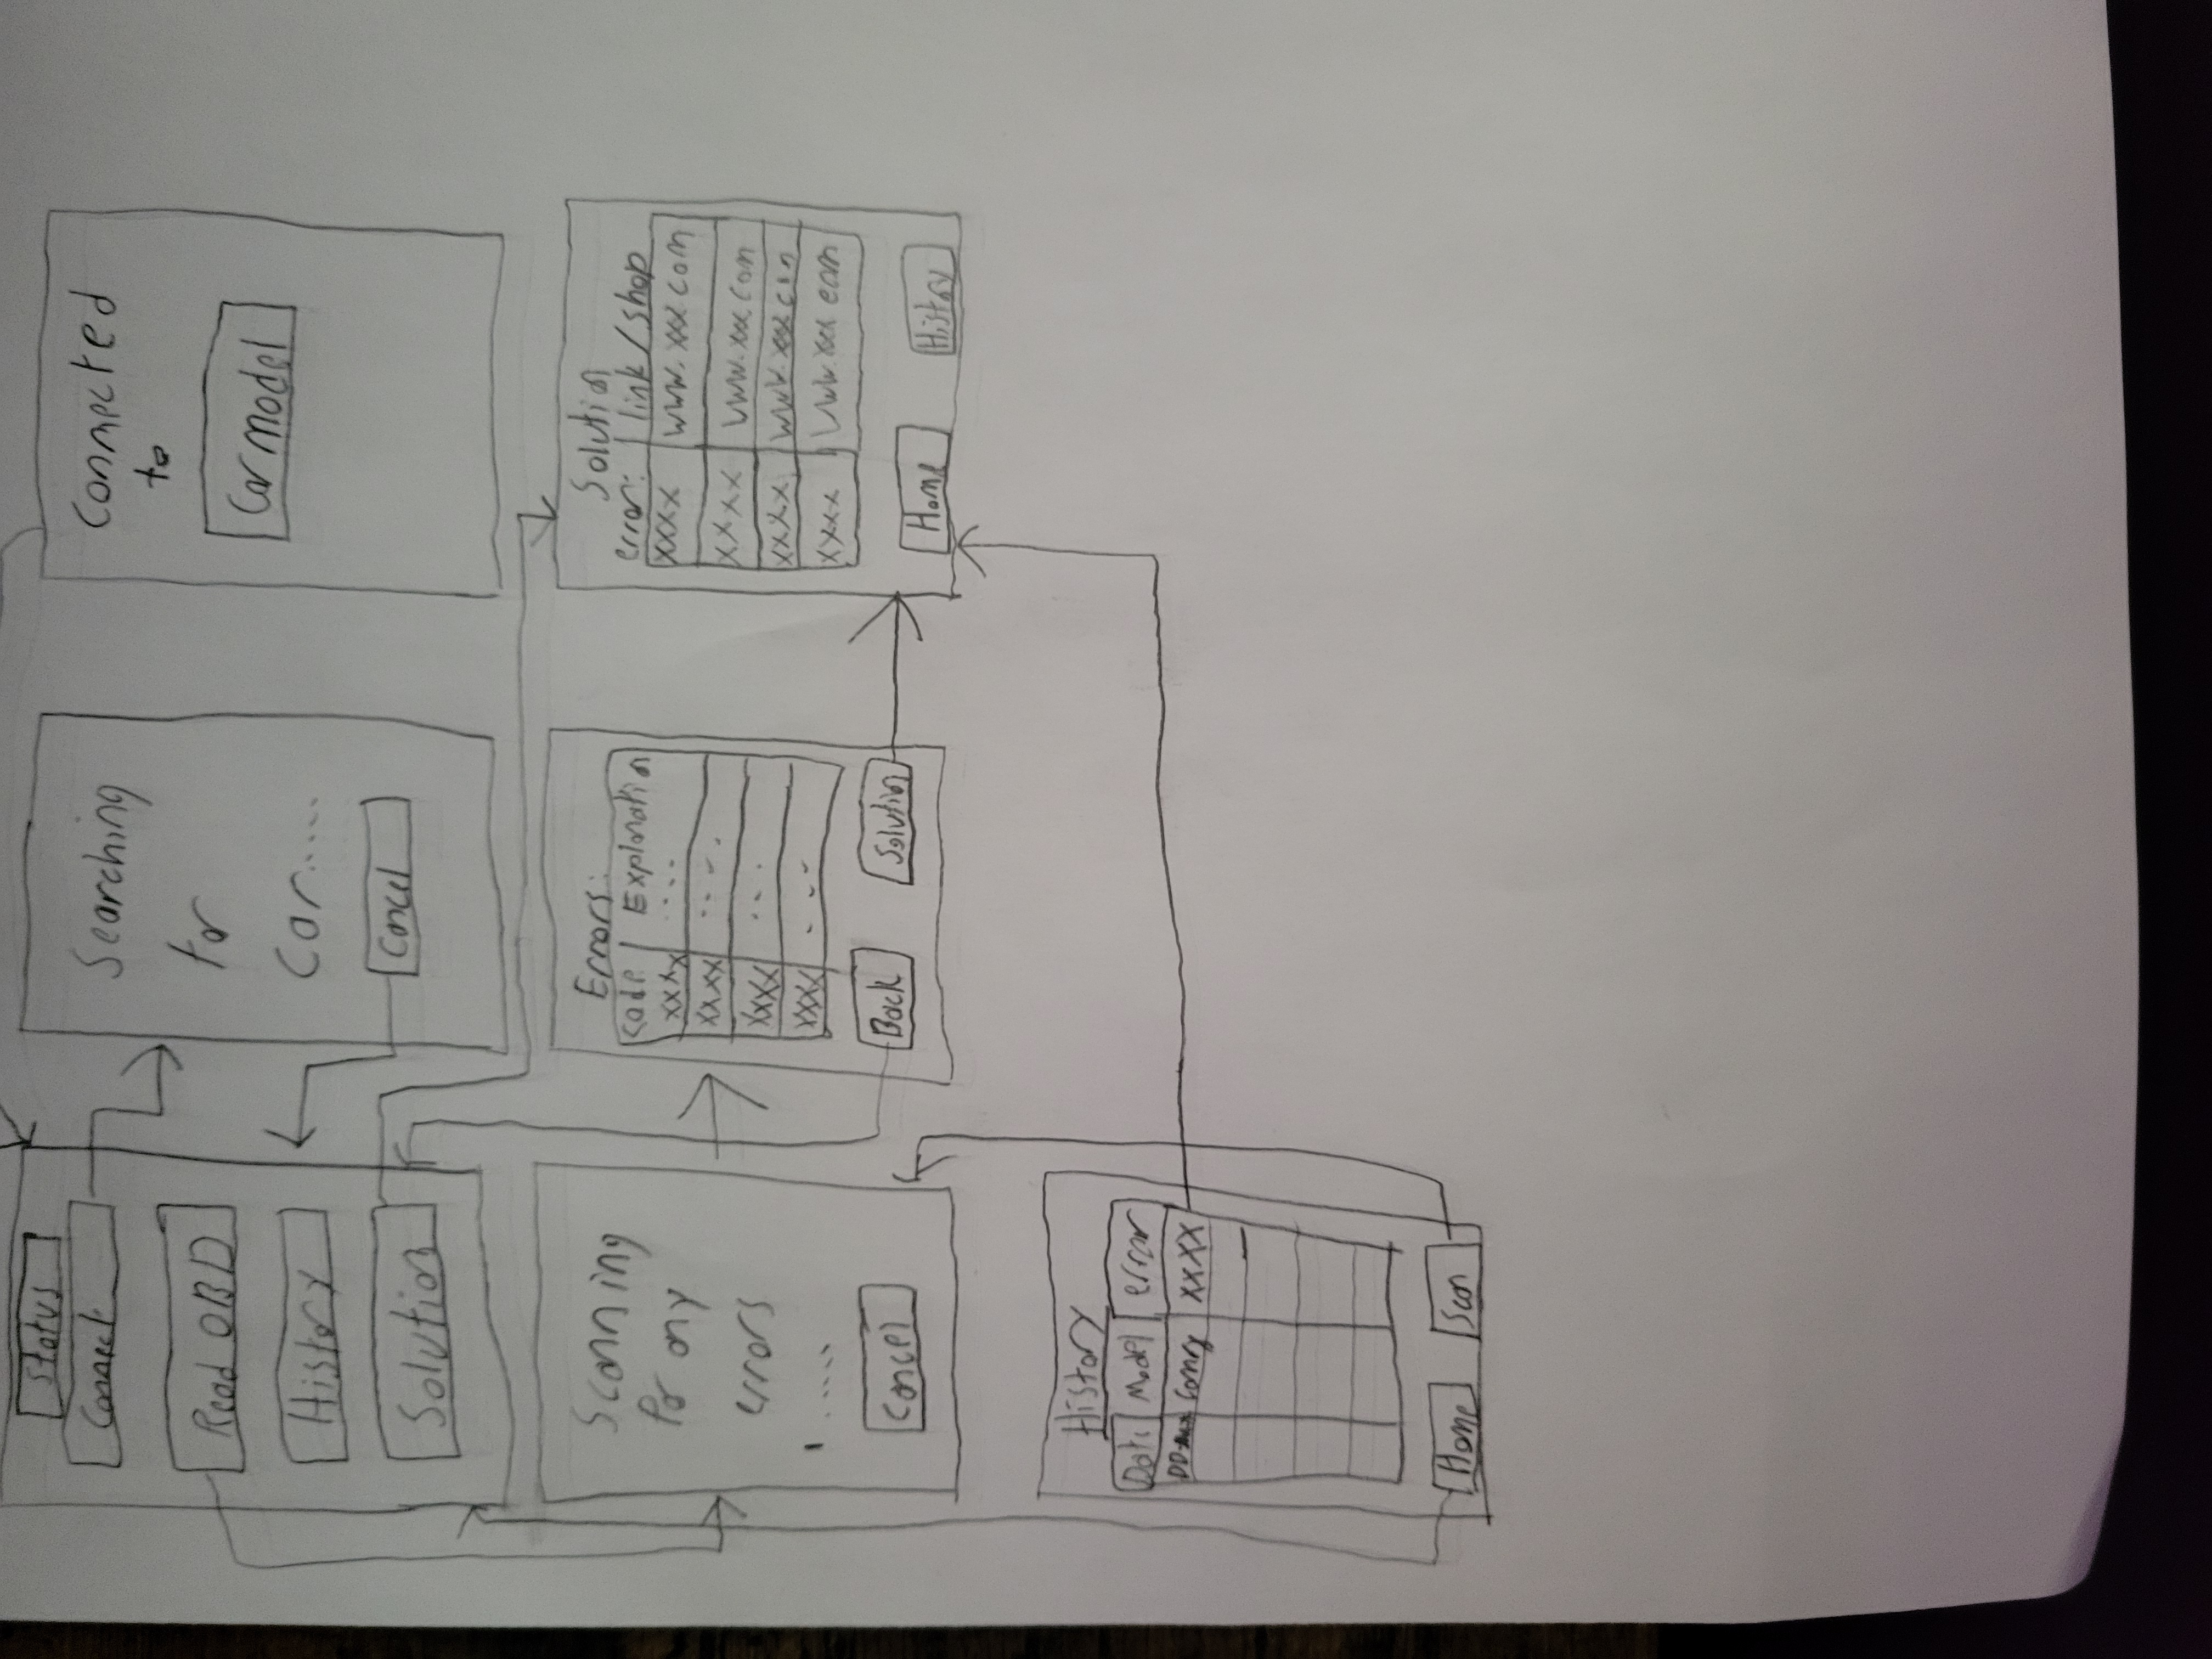 Status
Connect
Read OBD
History
Solution
Searching
for
Car.....
Cancel
Connected
to
Car model
Scanning
for any
errors
.....
Cancel
Errors:
Code Explanation
xxxx ....
xxxx ....
xxxx ...
xxxx ---
Back Solution
Solution
error: link/shop
xxxx www.xxx.com
xxxx www.xxx.com
xxxx www.xxx.com
xxxx www.xxx.com
Home History
History
Date Model error
DD Camry XXXX
Home Scan